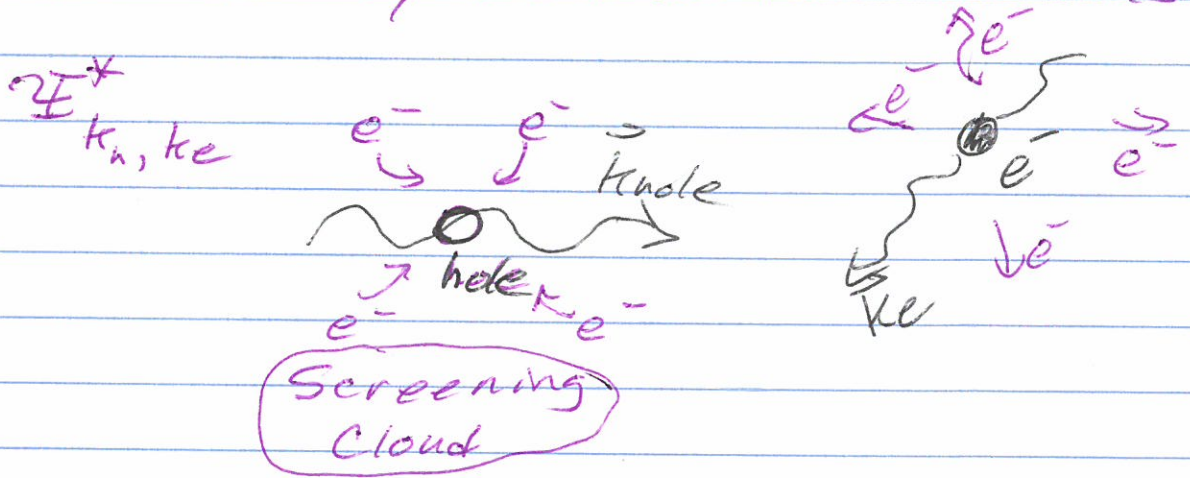 Ψ*
k_h, k_e
e⁻ e⁻ k⃗hole
hole
e⁻ e⁻
Screening
Cloud
e⁻
e⁻
e⁻ e⁻
e⁻
k_e